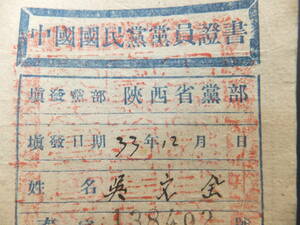 中國國民黨黨員證書
填發黨部 陝西省黨部
填發日期 33年12月 日
姓 名 吳 金
字 138402 號